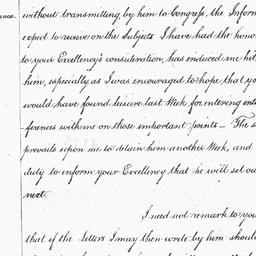 without transmitting by him to Congress, the Inform
expect to receive on the Subjects I have had the hono
to your Excellency's consideration, has induced me hit
him, especially as I was encouraged to hope that yo
would have found leisure last Week for entering into
ferences with me on those important points — The s
prevails upon me to detain him another Week, and
duty to inform your Excellency that he will set ou
next.
I need not remark to you
that if the Letters I may then write by him shoul